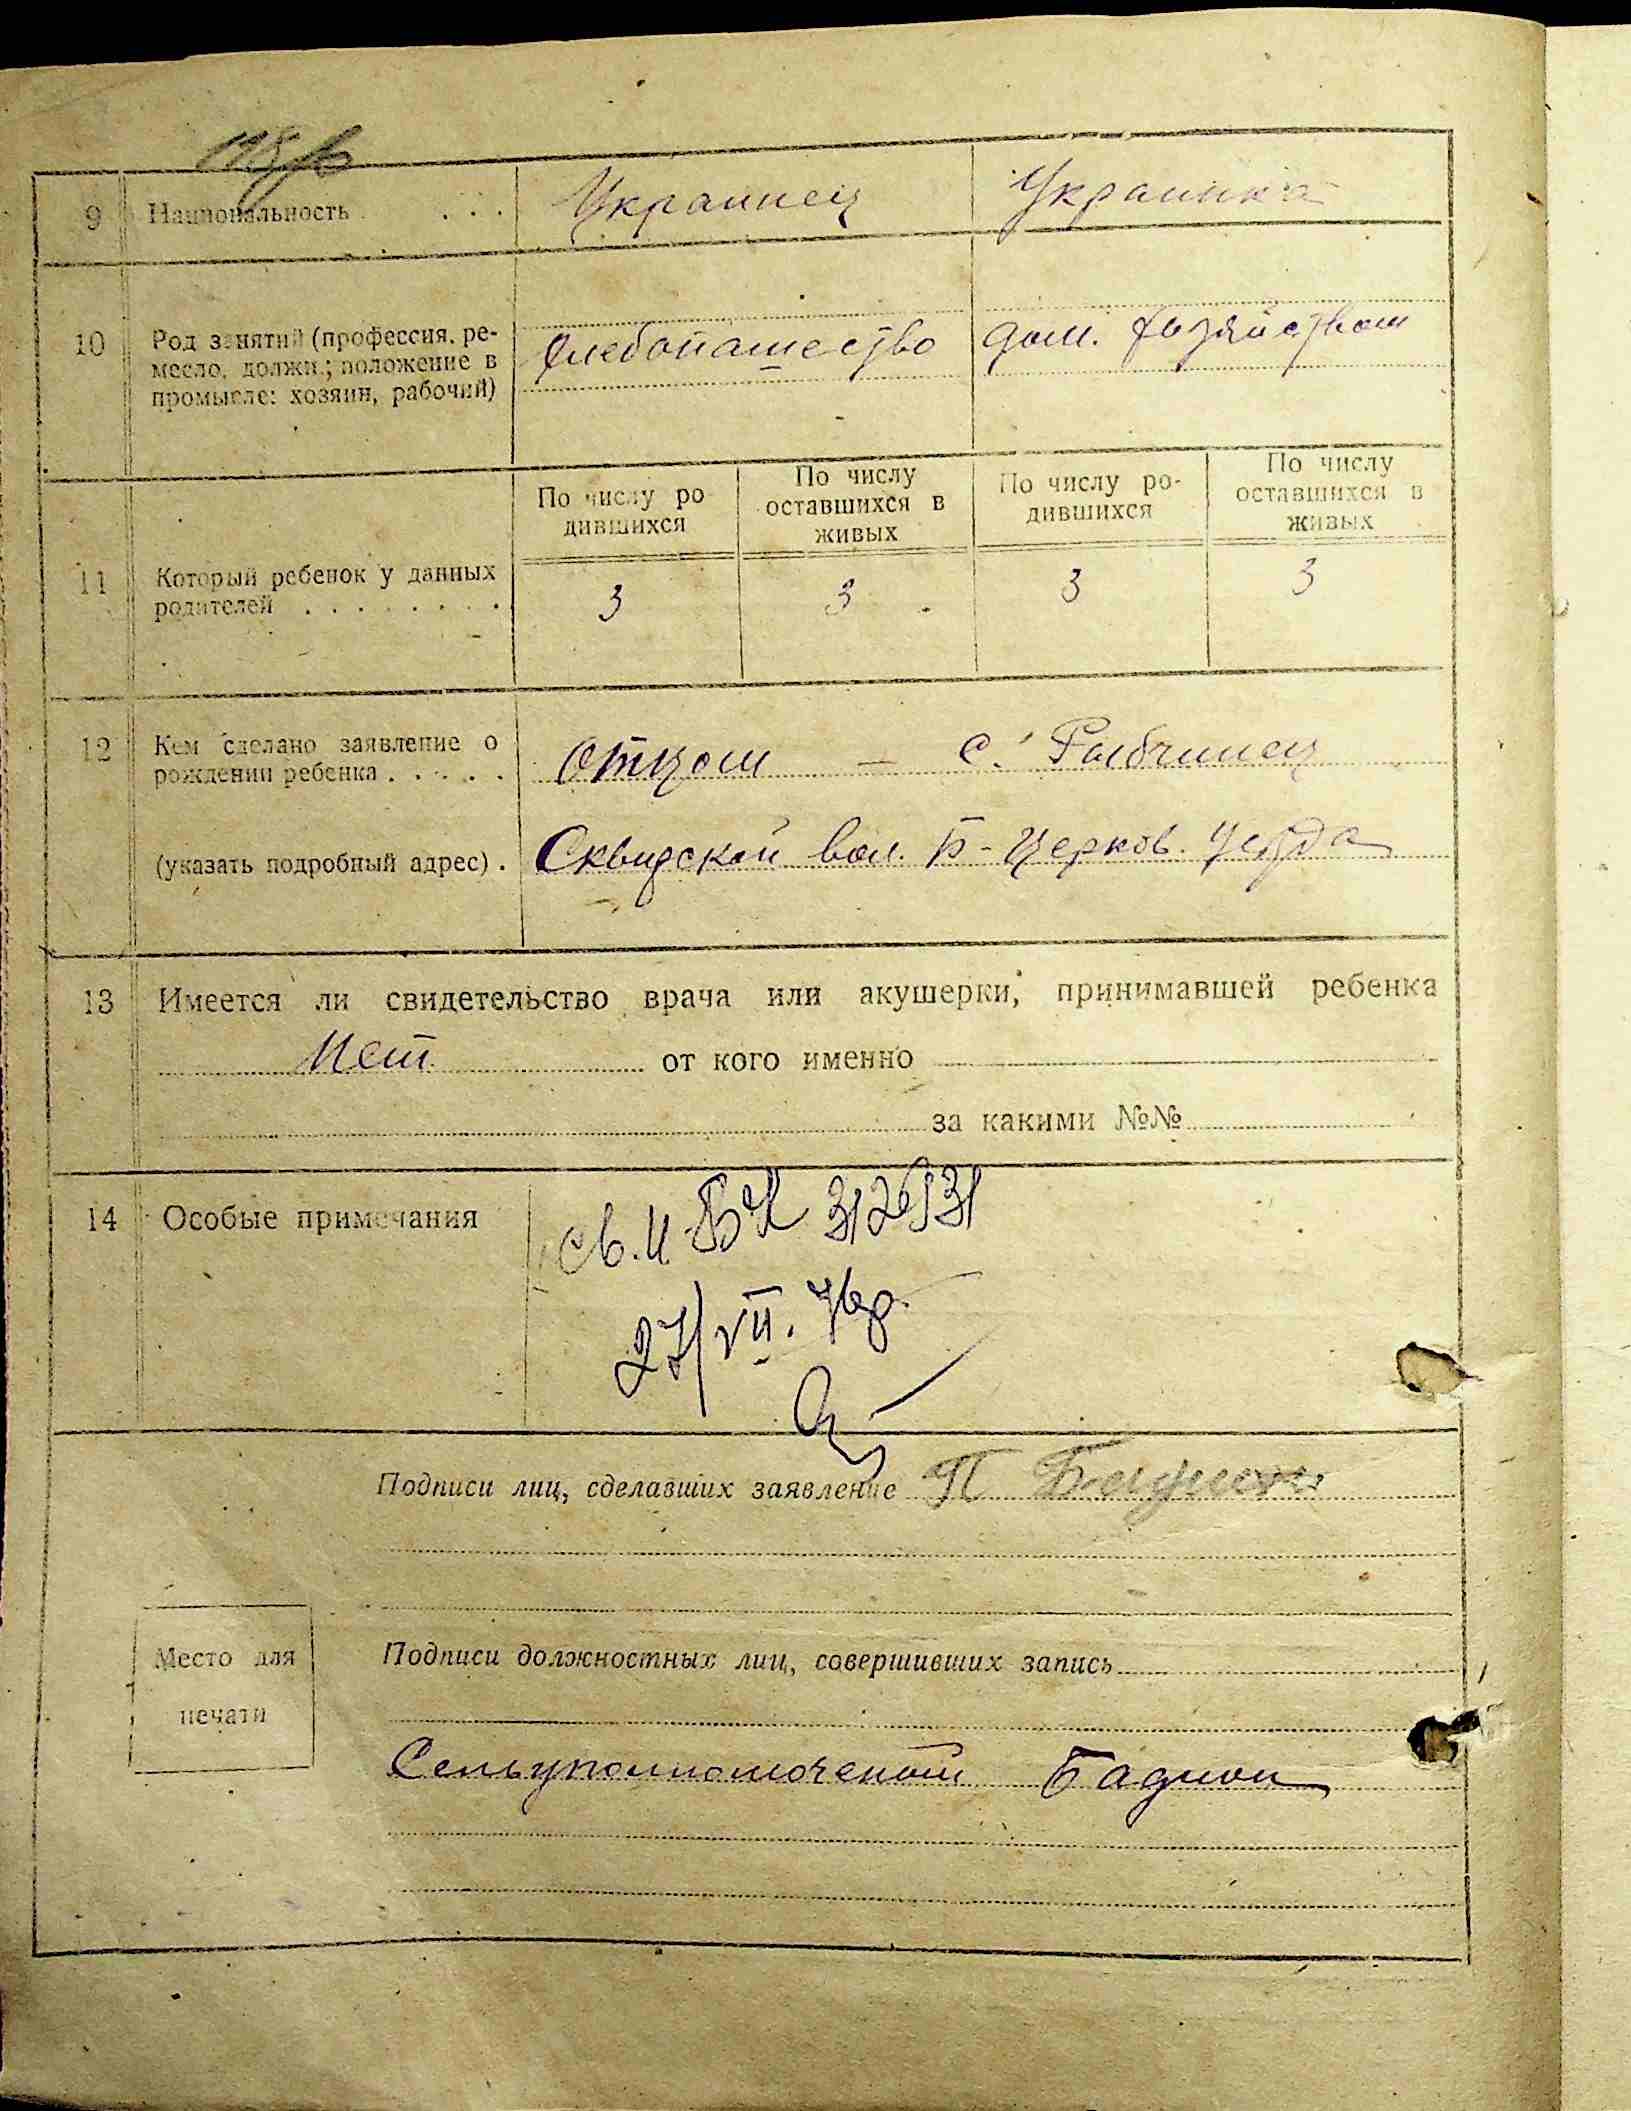 9 Национальность . . . . Украинец Украинка
10 Род занятий (профессия, ре-
месло, должн.; положение в
промысле: хозяин, рабочий)
Хлебопашество дом. хозяйством
По числу ро
дившихся
По числу
оставшихся в
живых
По числу ро-
дившихся
По числу
оставшихся в
живых
11 Который ребенок у данных
родителей . . . . . . . .
3 3 3 3
12 Кем сделано заявление о
рождении ребенка . . . . .
Отцом — с. Рыбчинец
(указать подробный адрес) .
Сквирской вол. Б-Церков. уезда
13 Имеется ли свидетельство врача или акушерки, принимавшей ребенка
Нет от кого именно
за какими №№
14 Особые примечания
27/VII. 76р.
Подписи лиц, сделавших заявление П
Место для
печати
Подписи должностных лиц, совершивших запись
Сельуполномоченый